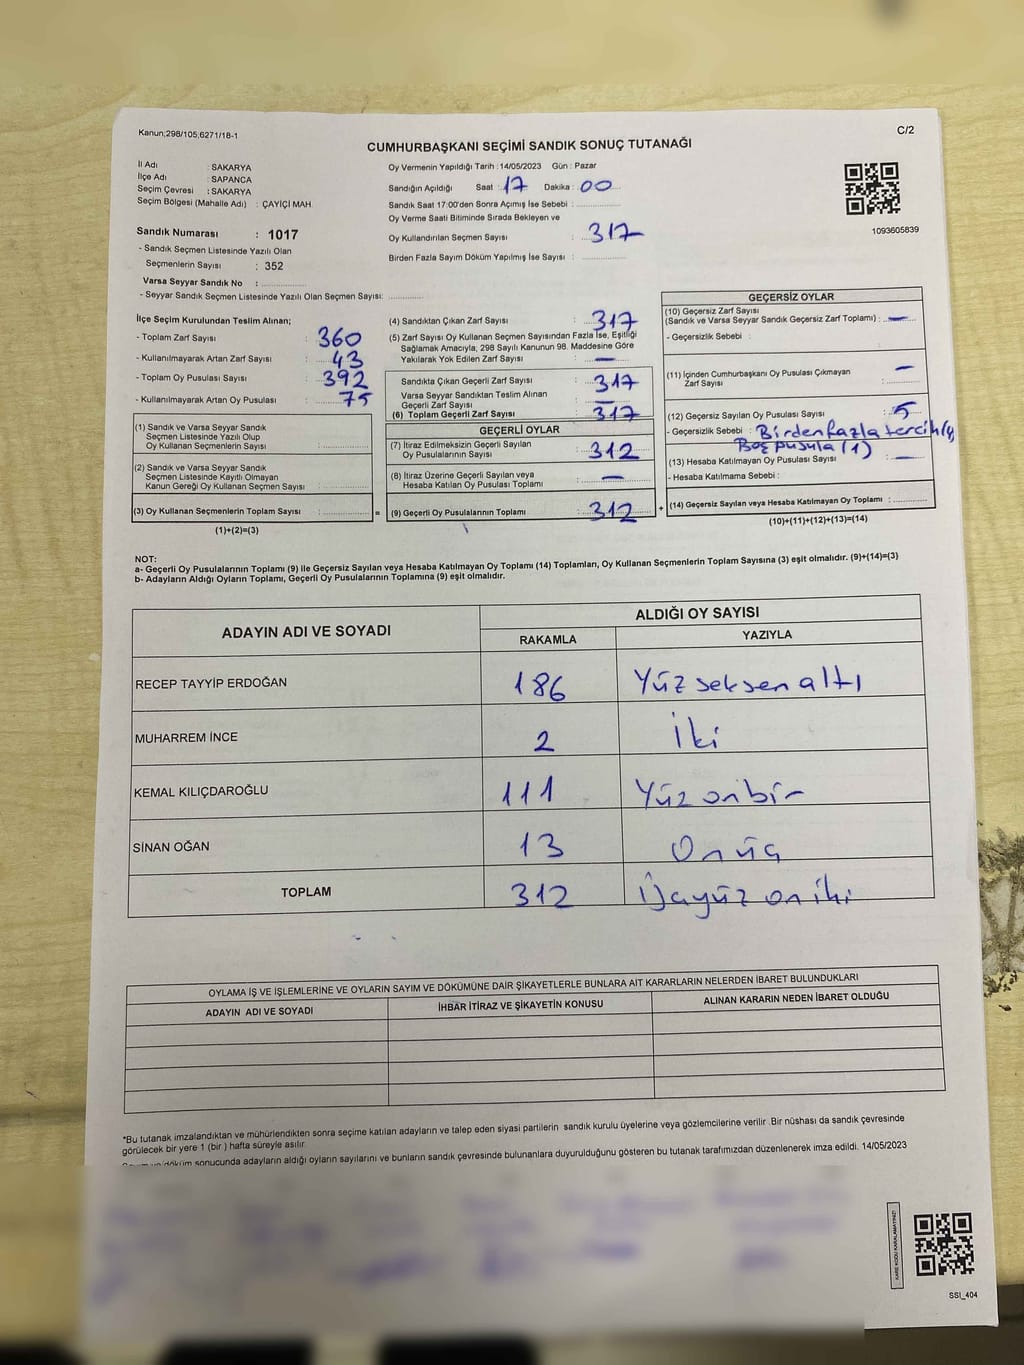 Kanun;298/105;6271/18-1
C/2
CUMHURBAŞKANI SEÇİMİ SANDIK SONUÇ TUTANAĞI
İl Adı : SAKARYA
İlçe Adı : SAPANCA
Seçim Çevresi : SAKARYA
Seçim Bölgesi (Mahalle Adı) : ÇAYİÇİ MAH.
Sandık Numarası : 1017
- Sandık Seçmen Listesinde Yazılı Olan
Seçmenlerin Sayısı : 352
Varsa Seyyar Sandık No :
- Seyyar Sandık Seçmen Listesinde Yazılı Olan Seçmen Sayısı:
Oy Vermenin Yapıldığı Tarih : 14/05/2023 Gün : Pazar
Sandığın Açıldığı Saat : 17 Dakika : 00
Sandık Saat 17:00'den Sonra Açımış İse Sebebi :
Oy Verme Saati Bitiminde Sırada Bekleyen ve
Oy Kullandırılan Seçmen Sayısı : 317
Birden Fazla Sayım Döküm Yapılmış İse Sayısı :
1093605839
İlçe Seçim Kurulundan Teslim Alınan;
- Toplam Zarf Sayısı : 360
- Kullanılmayarak Artan Zarf Sayısı : 43
- Toplam Oy Pusulası Sayısı : 392
- Kullanılmayarak Artan Oy Pusulası : 75
(1) Sandık ve Varsa Seyyar Sandık
Seçmen Listesinde Yazılı Olup
Oy Kullanan Seçmenlerin Sayısı :
(2) Sandık ve Varsa Seyyar Sandık
Seçmen Listesinde Kayıtlı Olmayan
Kanun Gereği Oy Kullanan Seçmen Sayısı :
(3) Oy Kullanan Seçmenlerin Toplam Sayısı :
(1)+(2)=(3)
(4) Sandıktan Çıkan Zarf Sayısı : 317
(5) Zarf Sayısı Oy Kullanan Seçmen Sayısından Fazla İse, Eşitliği
Sağlamak Amacıyla, 298 Sayılı Kanunun 98. Maddesine Göre
Yakılarak Yok Edilen Zarf Sayısı : —
Sandıkta Çıkan Geçerli Zarf Sayısı : 317
Varsa Seyyar Sandıktan Teslim Alınan
Geçerli Zarf Sayısı : —
(6) Toplam Geçerli Zarf Sayısı : 317
GEÇERLİ OYLAR
(7) İtiraz Edilmeksizin Geçerli Sayılan
Oy Pusulalarının Sayısı : 312
(8) İtiraz Üzerine Geçerli Sayılan veya
Hesaba Katılan Oy Pusulası Toplamı : —
(9) Geçerli Oy Pusulalarının Toplamı : 312
GEÇERSİZ OYLAR
(10) Geçersiz Zarf Sayısı
(Sandık ve Varsa Seyyar Sandık Geçersiz Zarf Toplamı) : —
- Geçersizlik Sebebi :
(11) İçinden Cumhurbaşkanı Oy Pusulası Çıkmayan
Zarf Sayısı : —
(12) Geçersiz Sayılan Oy Pusulası Sayısı : 5
- Geçersizlik Sebebi : Birden fazla tercih
Boş pusula (1)
(13) Hesaba Katılmayan Oy Pusulası Sayısı : —
- Hesaba Katılmama Sebebi :
(14) Geçersiz Sayılan veya Hesaba Katılmayan Oy Toplamı :
(10)+(11)+(12)+(13)=(14)
NOT:
a- Geçerli Oy Pusulalarının Toplamı (9) ile Geçersiz Sayılan veya Hesaba Katılmayan Oy Toplamı (14) Toplamları, Oy Kullanan Seçmenlerin Toplam Sayısına (3) eşit olmalıdır. (9)+(14)=(3)
b- Adayların Aldığı Oyların Toplamı, Geçerli Oy Pusulalarının Toplamına (9) eşit olmalıdır.
ADAYIN ADI VE SOYADI
ALDIĞI OY SAYISI
RAKAMLA YAZIYLA
RECEP TAYYİP ERDOĞAN 186 Yüz seksen altı
MUHARREM İNCE 2 İki
KEMAL KILIÇDAROĞLU 111 Yüz onbir
SİNAN OĞAN 13 Onüç
TOPLAM 312 Üçyüz on iki
OYLAMA İŞ VE İŞLEMLERİNE VE OYLARIN SAYIM VE DÖKÜMÜNE DAİR ŞİKAYETLERLE BUNLARA AİT KARARLARIN NELERDEN İBARET BULUNDUKLARI
ADAYIN ADI VE SOYADI İHBAR İTİRAZ VE ŞİKAYETİN KONUSU ALINAN KARARIN NEDEN İBARET OLDUĞU
*Bu tutanak imzalandıktan ve mühürlendikten sonra seçime katılan adayların ve talep eden siyasi partilerin sandık kurulu üyelerine veya gözlemcilerine verilir .Bir nüshası da sandık çevresinde
görülecek bir yere 1 (bir ) hafta süreyle asılır.
sonucunda adayların aldığı oyların sayılarını ve bunların sandık çevresinde bulunanlara duyurulduğunu gösteren bu tutanak tarafımızdan düzenlenerek imza edildi. 14/05/2023
KARE KODU KARALAMAYINIZ!
SSI_404